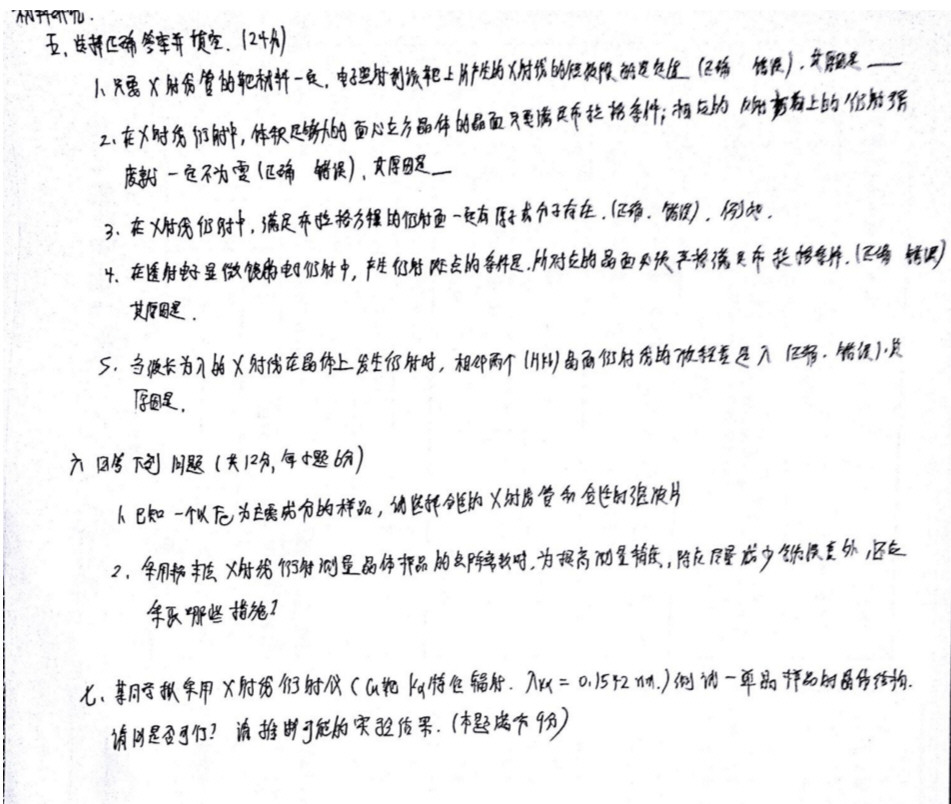 五、选择正确答案并填空.(24分)
1、只要X射线管的靶材料一定,电子照射到该靶上所产生的X射线的短波限 (正确 错误),其原因是 ——
2、在X射线衍射中,体积足够大的面心立方晶体的晶面只要满足布拉格条件;相应的 上的衍射强
度就一定不为零(正确 错误),其原因是——
3、在X射线衍射中,满足布拉格方程的衍射面一定有原子或分子存在.(正确、错误),例如.
4、在透射电子显微镜的电子衍射中,产生衍射斑点的条件是,所对应的晶面必须严格满足布拉格条件.(正确 错误)
其原因是.
5、当波长为λ的X射线在晶体上发生衍射时,相邻两个(HKL)晶面衍射线的波程差是λ(正确、错误).其
原因是.
六 回答下列问题(共12分,每小题6分)
1、已知一个以Fe为主要成分的样品,请选择合适的X射线管和合适的滤波片
2、采用粉末法X射线衍射测量晶体样品的点阵常数时,为提高测量精度,除应尽量减少 误差外,还应
采取哪些措施?
七、某同学拟采用X射线衍射仪(Cu靶Kα特征辐射.λKα=0.1542nm.)测试一单晶样品的晶体结构.
请问是否可行?请推断可能的实验结果.(本题满分9分)